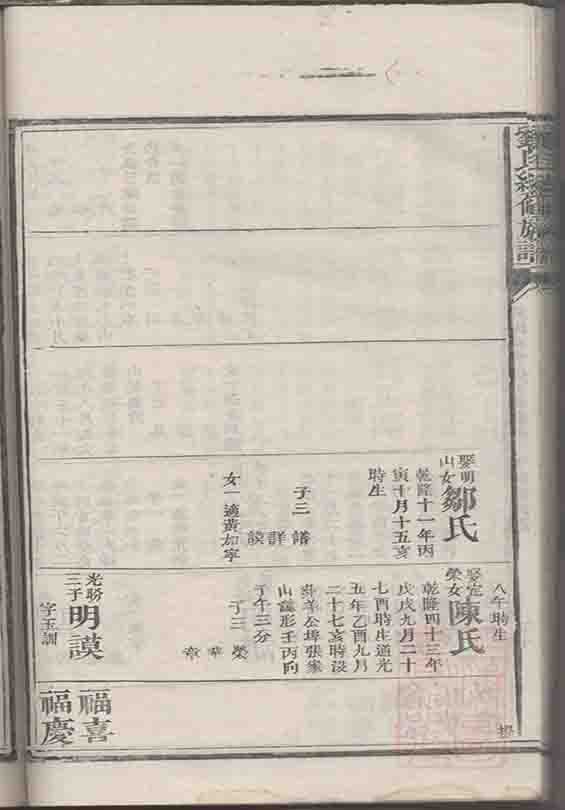 氏總修族譜
娶明
山女
鄒氏
乾隆十一年丙
寅十月十五亥
時生
子三 譜 詳 謨
女一適黃如寧
八午時生
娶定
榮女
陳氏
乾隆四十三年
戊戌九月二十
七酉時生道光
五年乙酉九月
二十七亥時沒
公埠張家
山 形壬丙向
子午三分
子三 榮 華 章
光聆
三子
明謨
字玉訓
福喜
福慶